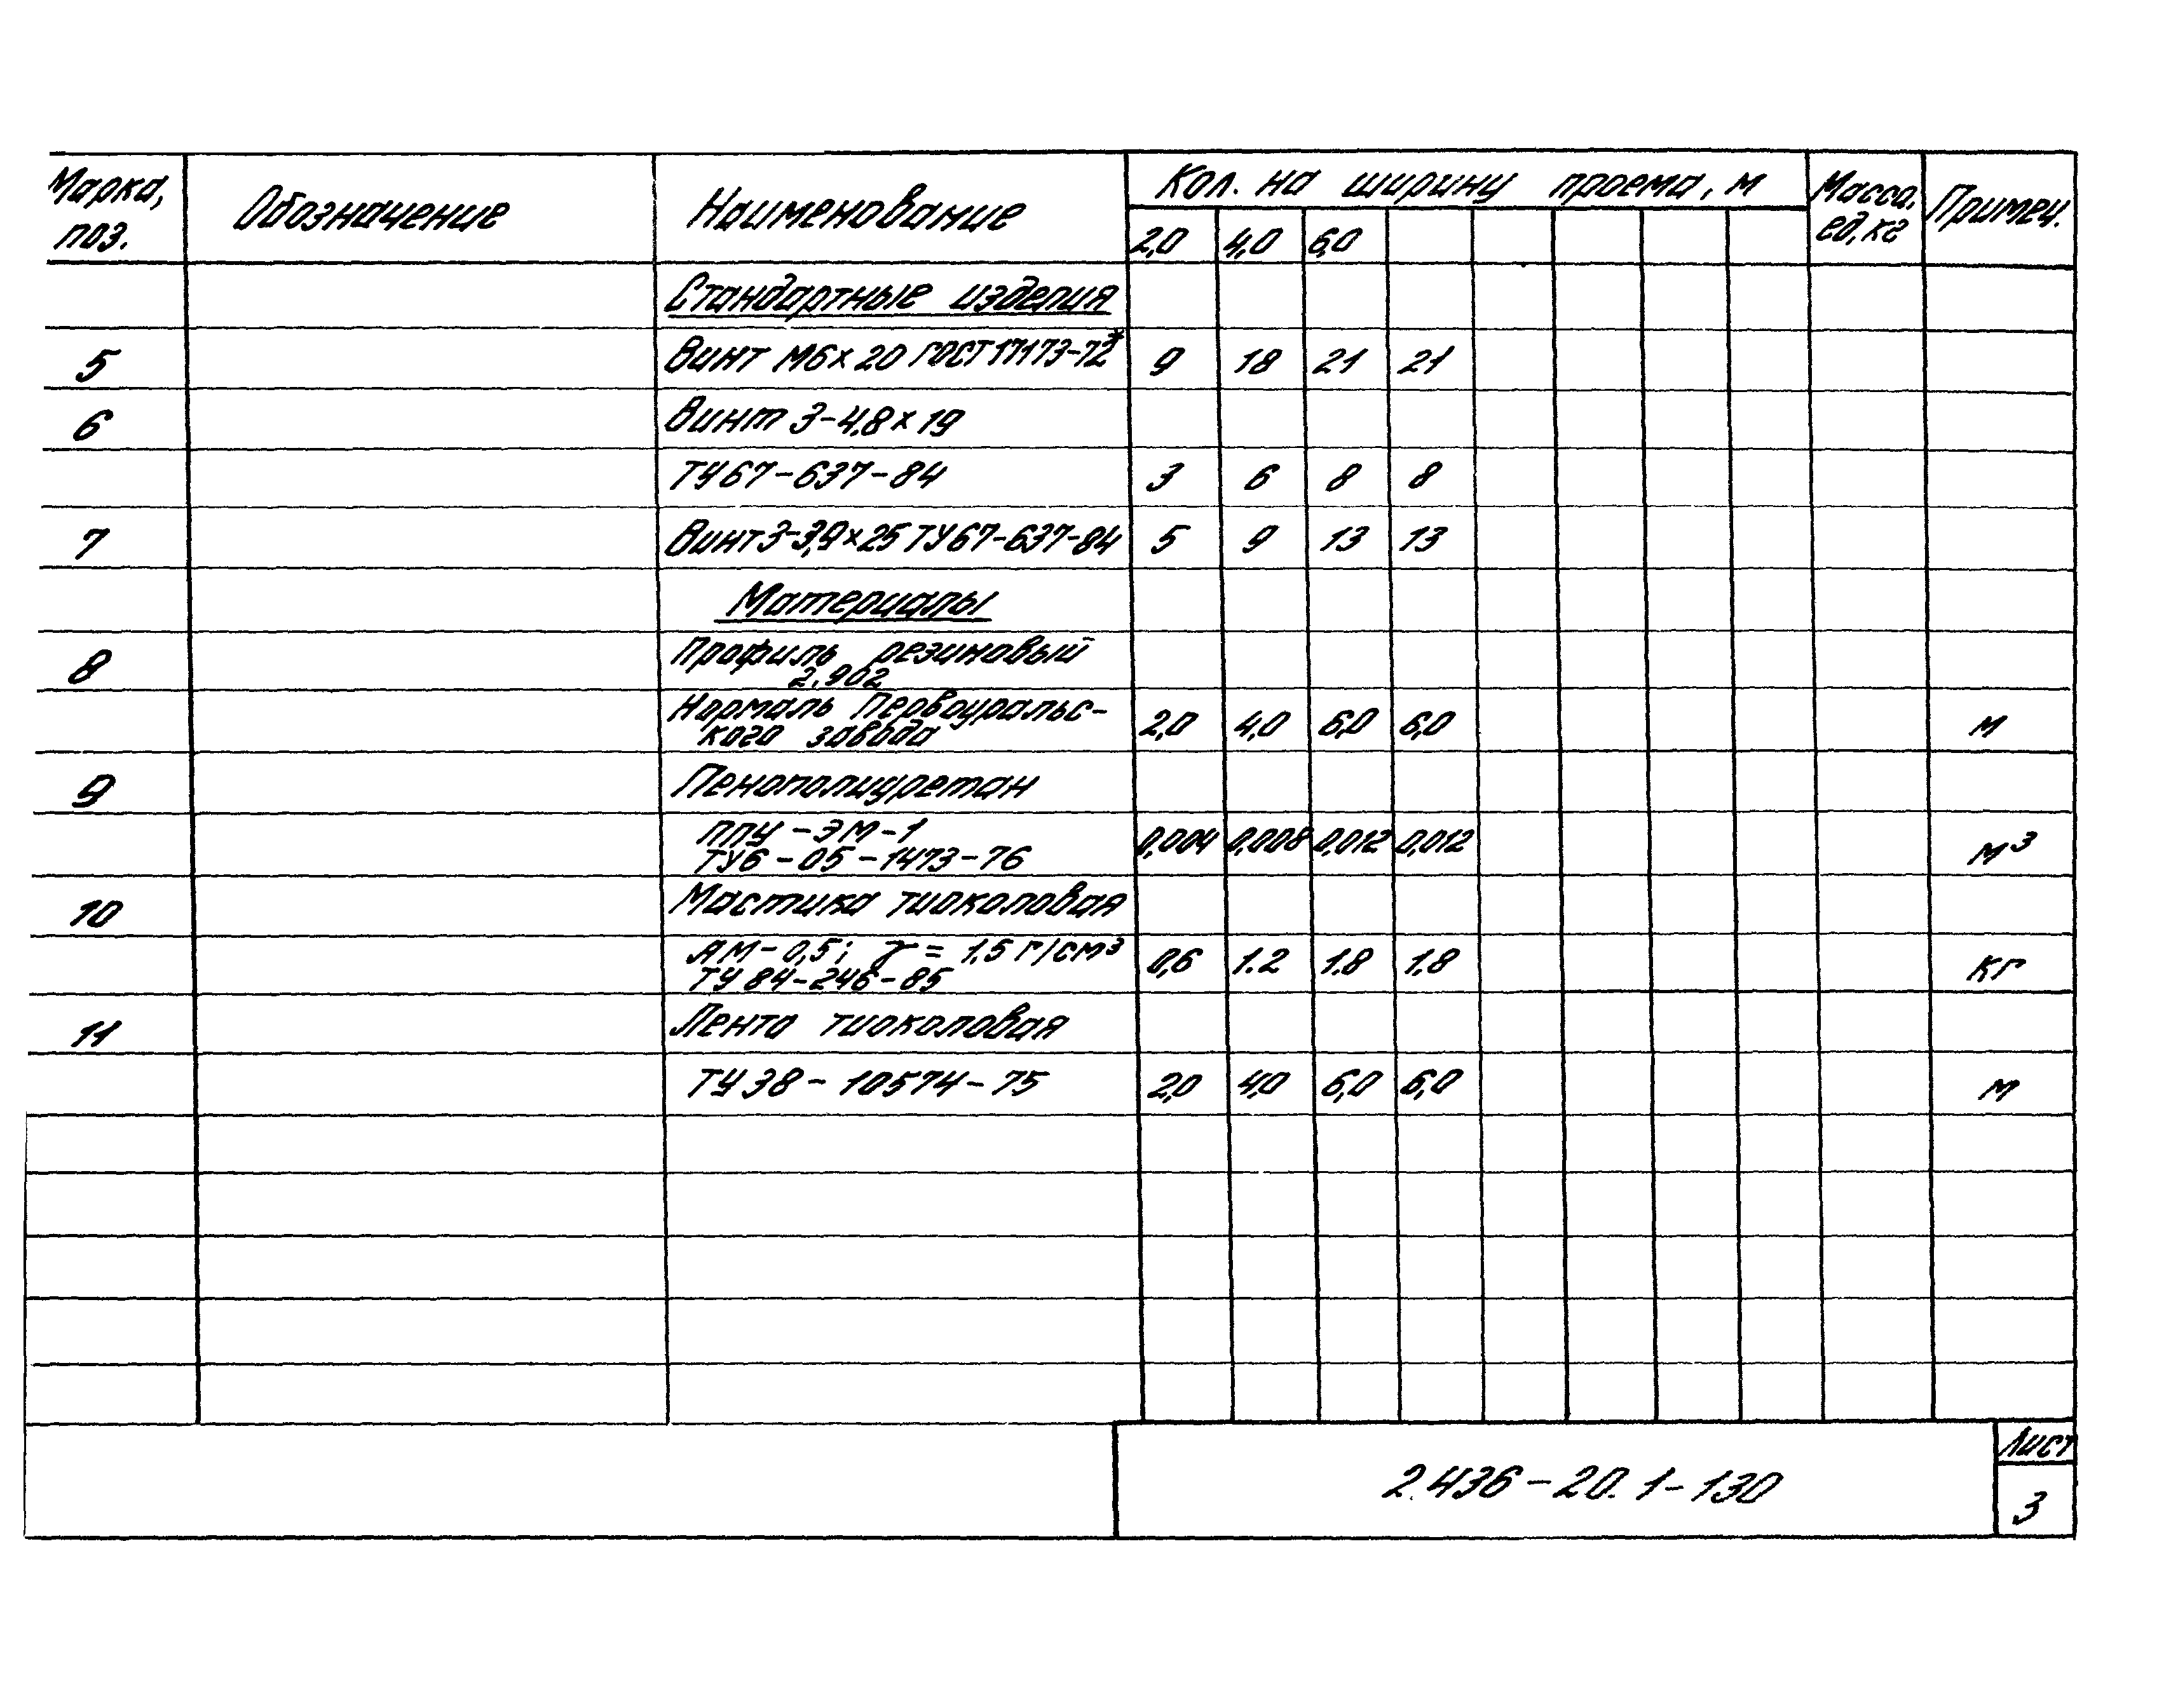 Марка, поз. Обозначение Наименование Кол. на ширину проема, м Масса, ед, кг Примеч.
2,0 4,0 6,0
Стандартные изделия
5 Винт М6×20 ГОСТ 17173-72* 9 18 21 21
6 Винт 3-4,8×19
ТУ67-637-84 3 6 8 8
7 Винт 3-3,9×25 ТУ67-637-84 5 9 13 13
Материалы
8 Профиль резиновый
2.902
Нормаль Первоуральс-
кого завода 2,0 4,0 6,0 6,0 м
9 Пенополиуретан
ППУ-ЭМ-1
ТУ6-05-1473-76 0,004 0,008 0,012 0,012 м³
10 Мастика тиоколовая
АМ-0,5; γ = 1,5 г/см³
ТУ 84-246-85 0,6 1.2 1.8 1,8 кг
11 Лента тиоколовая
ТУ 38-10574-75 2,0 4,0 6,0 6,0 м
2.436-20.1-130
Лист
3